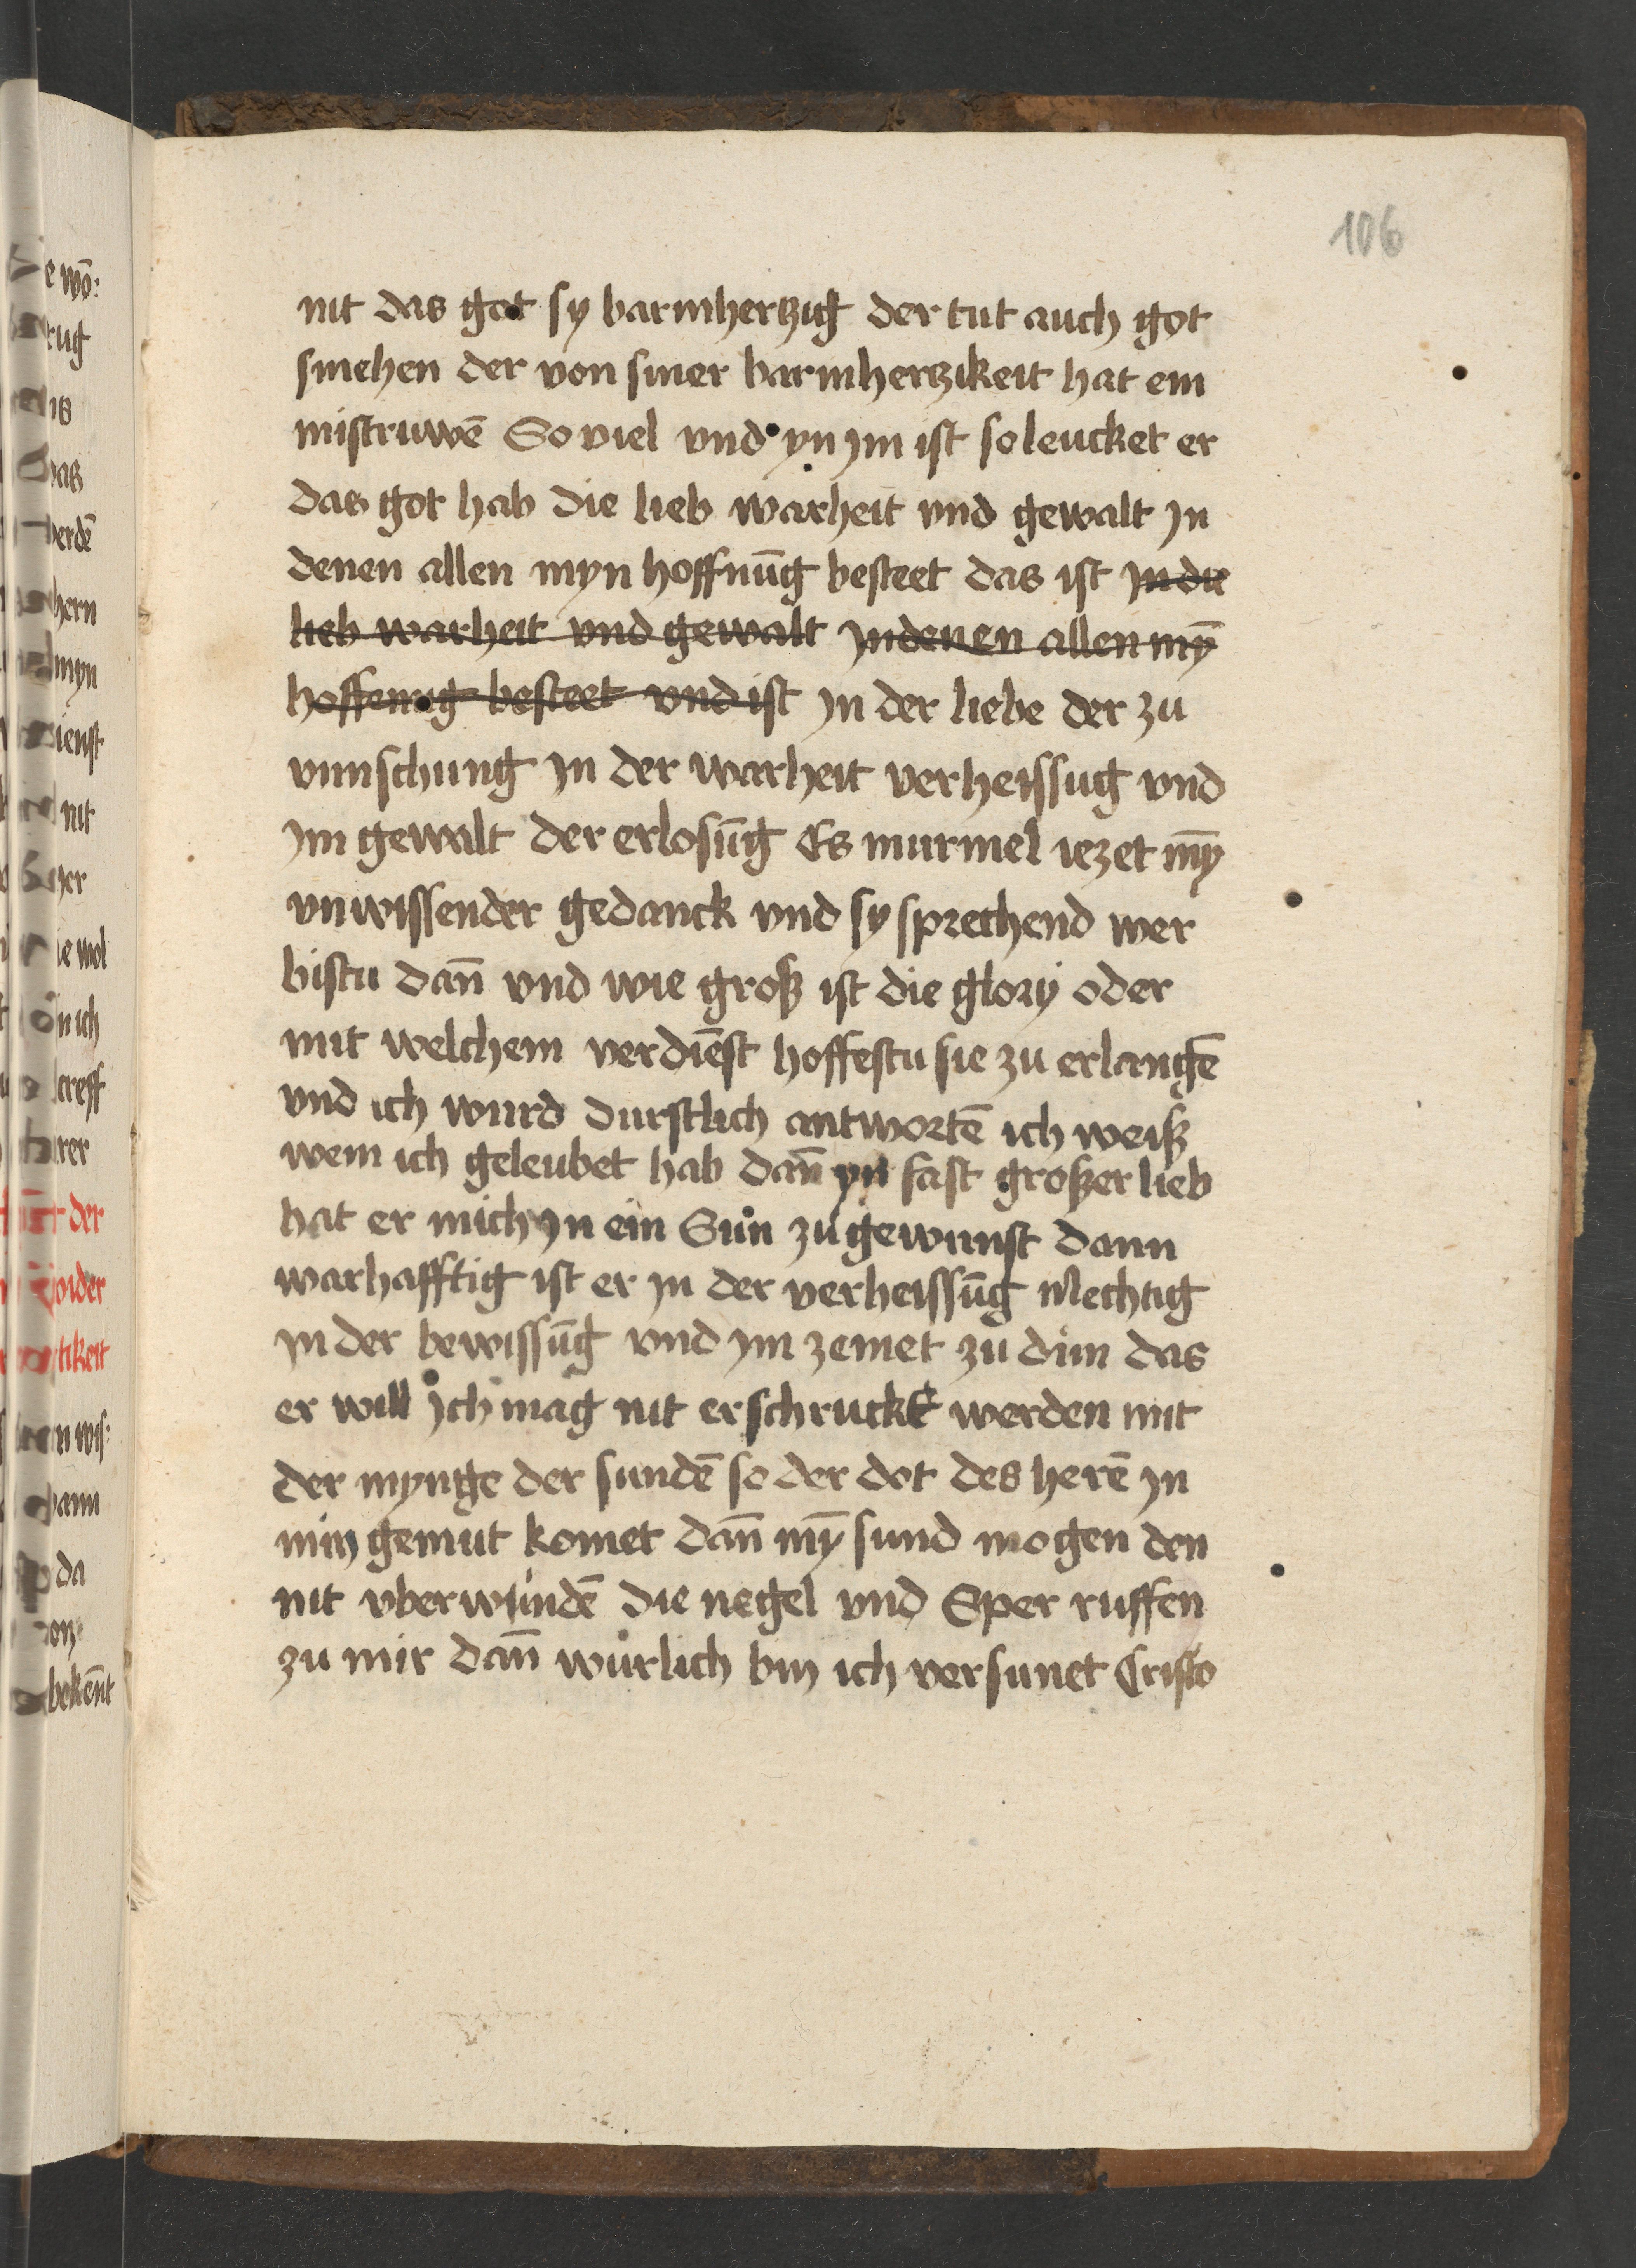 106
nit das got sy barmhertzig der tut auch got
smehen der von siner barmhertzikeit hat ein
mistruwē So viel vnd yn jm ist so leucket er
das got hab die lieb warheit vnd gewalt jn
denen allen myn hoffnūg besteet das ist jn die
lieb warheit vnd gewalt jn denen allen mȳ
hoffenug besteet vnd ist jn der liebe der zu
vunschung jn der warheit verheissug vnd
jm gewalt der erlosūg Es murmel iezet mȳ
vnwissender gedanck vnd sy sprechend wer
bistu dan̄ vnd wie groß ist die glory oder
mit welchem verdiēst hoffestu sie zu erlangē
vnd ich wurd durstlich antwortē ich weiß
wem ich geleubet hab dan̄ yn fast großer lieb
hat er mich yn ein Sůn zu gewunst dann
warhafftig ist er jn der verheissūg Mechtig
jn der bewissūg vnd jm zemet zu důn das
er will Jch mag nit erschruckē werden mit
der mynge der sundē so der dot des herē jn
min gemut komet dan̄ mȳ sund mogen den
nit vberwůndē die negel vnd Sper ruffen
zu mir dan̄ wůrlich bin ich versunet Cristo